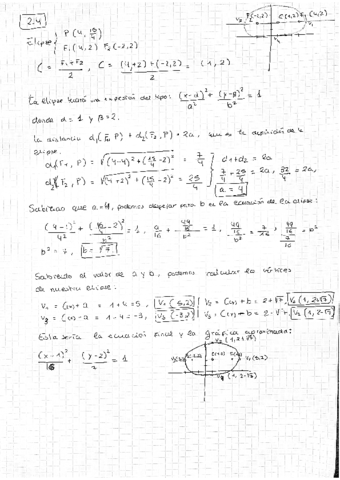 2.4
Elipse { P(4, 15/4)
F₁(4,2) F₂(-2,2)
F₂(-2,2) C(1,2) F₁(4,2)
C = (F₁+F₂)/2, C = ((4,2)+(-2,2))/2 = (1,2)
La elipse tendrá una expresión del tipo: (x-α)²/a² + (y-β)²/b² = 1
donde α = 1 y β = 2.
la distancia d₁(F₁,P) + d₂(F₂,P) = 2a, es la definición de
elipse.
d₁(F₁,P) = √((4-4)²+(15/4-2)²) = 7/4 } d₁+d₂ = 2a
d₂(F₂,P) = √((4+2)²+(15/4-2)²) = 25/4 } 7/4 + 25/4 = 2a, 32/4 = 2a,
a = 4
Sabemos que a=4, podemos despejar para b en la ecuación de la elipse:
(4-1)²/4² + (15/4-2)²/b² = 1, 9/16 + 49/16/b² = 1,
b² = 7, b = √7
Sabiendo el valor de a y b, podemos calcular los vértices
de nuestra elipse:
V₁ = C(x)+a = 1+4 = 5, V₁(5,2) V₂ = C(y)+b = 2+√7, V₂(1,2+√7)
= C(x)-a = 1-4 = -3, (-3,2) = C(y)-b = 2-√7, (1,2-√7)
Esta sería la ecuación final y la gráfica aproximada:
(x-1)²/16 + (y-2)²/7 = 1
(1,2+√7)
V₁(5,2)
(1,2-√7)